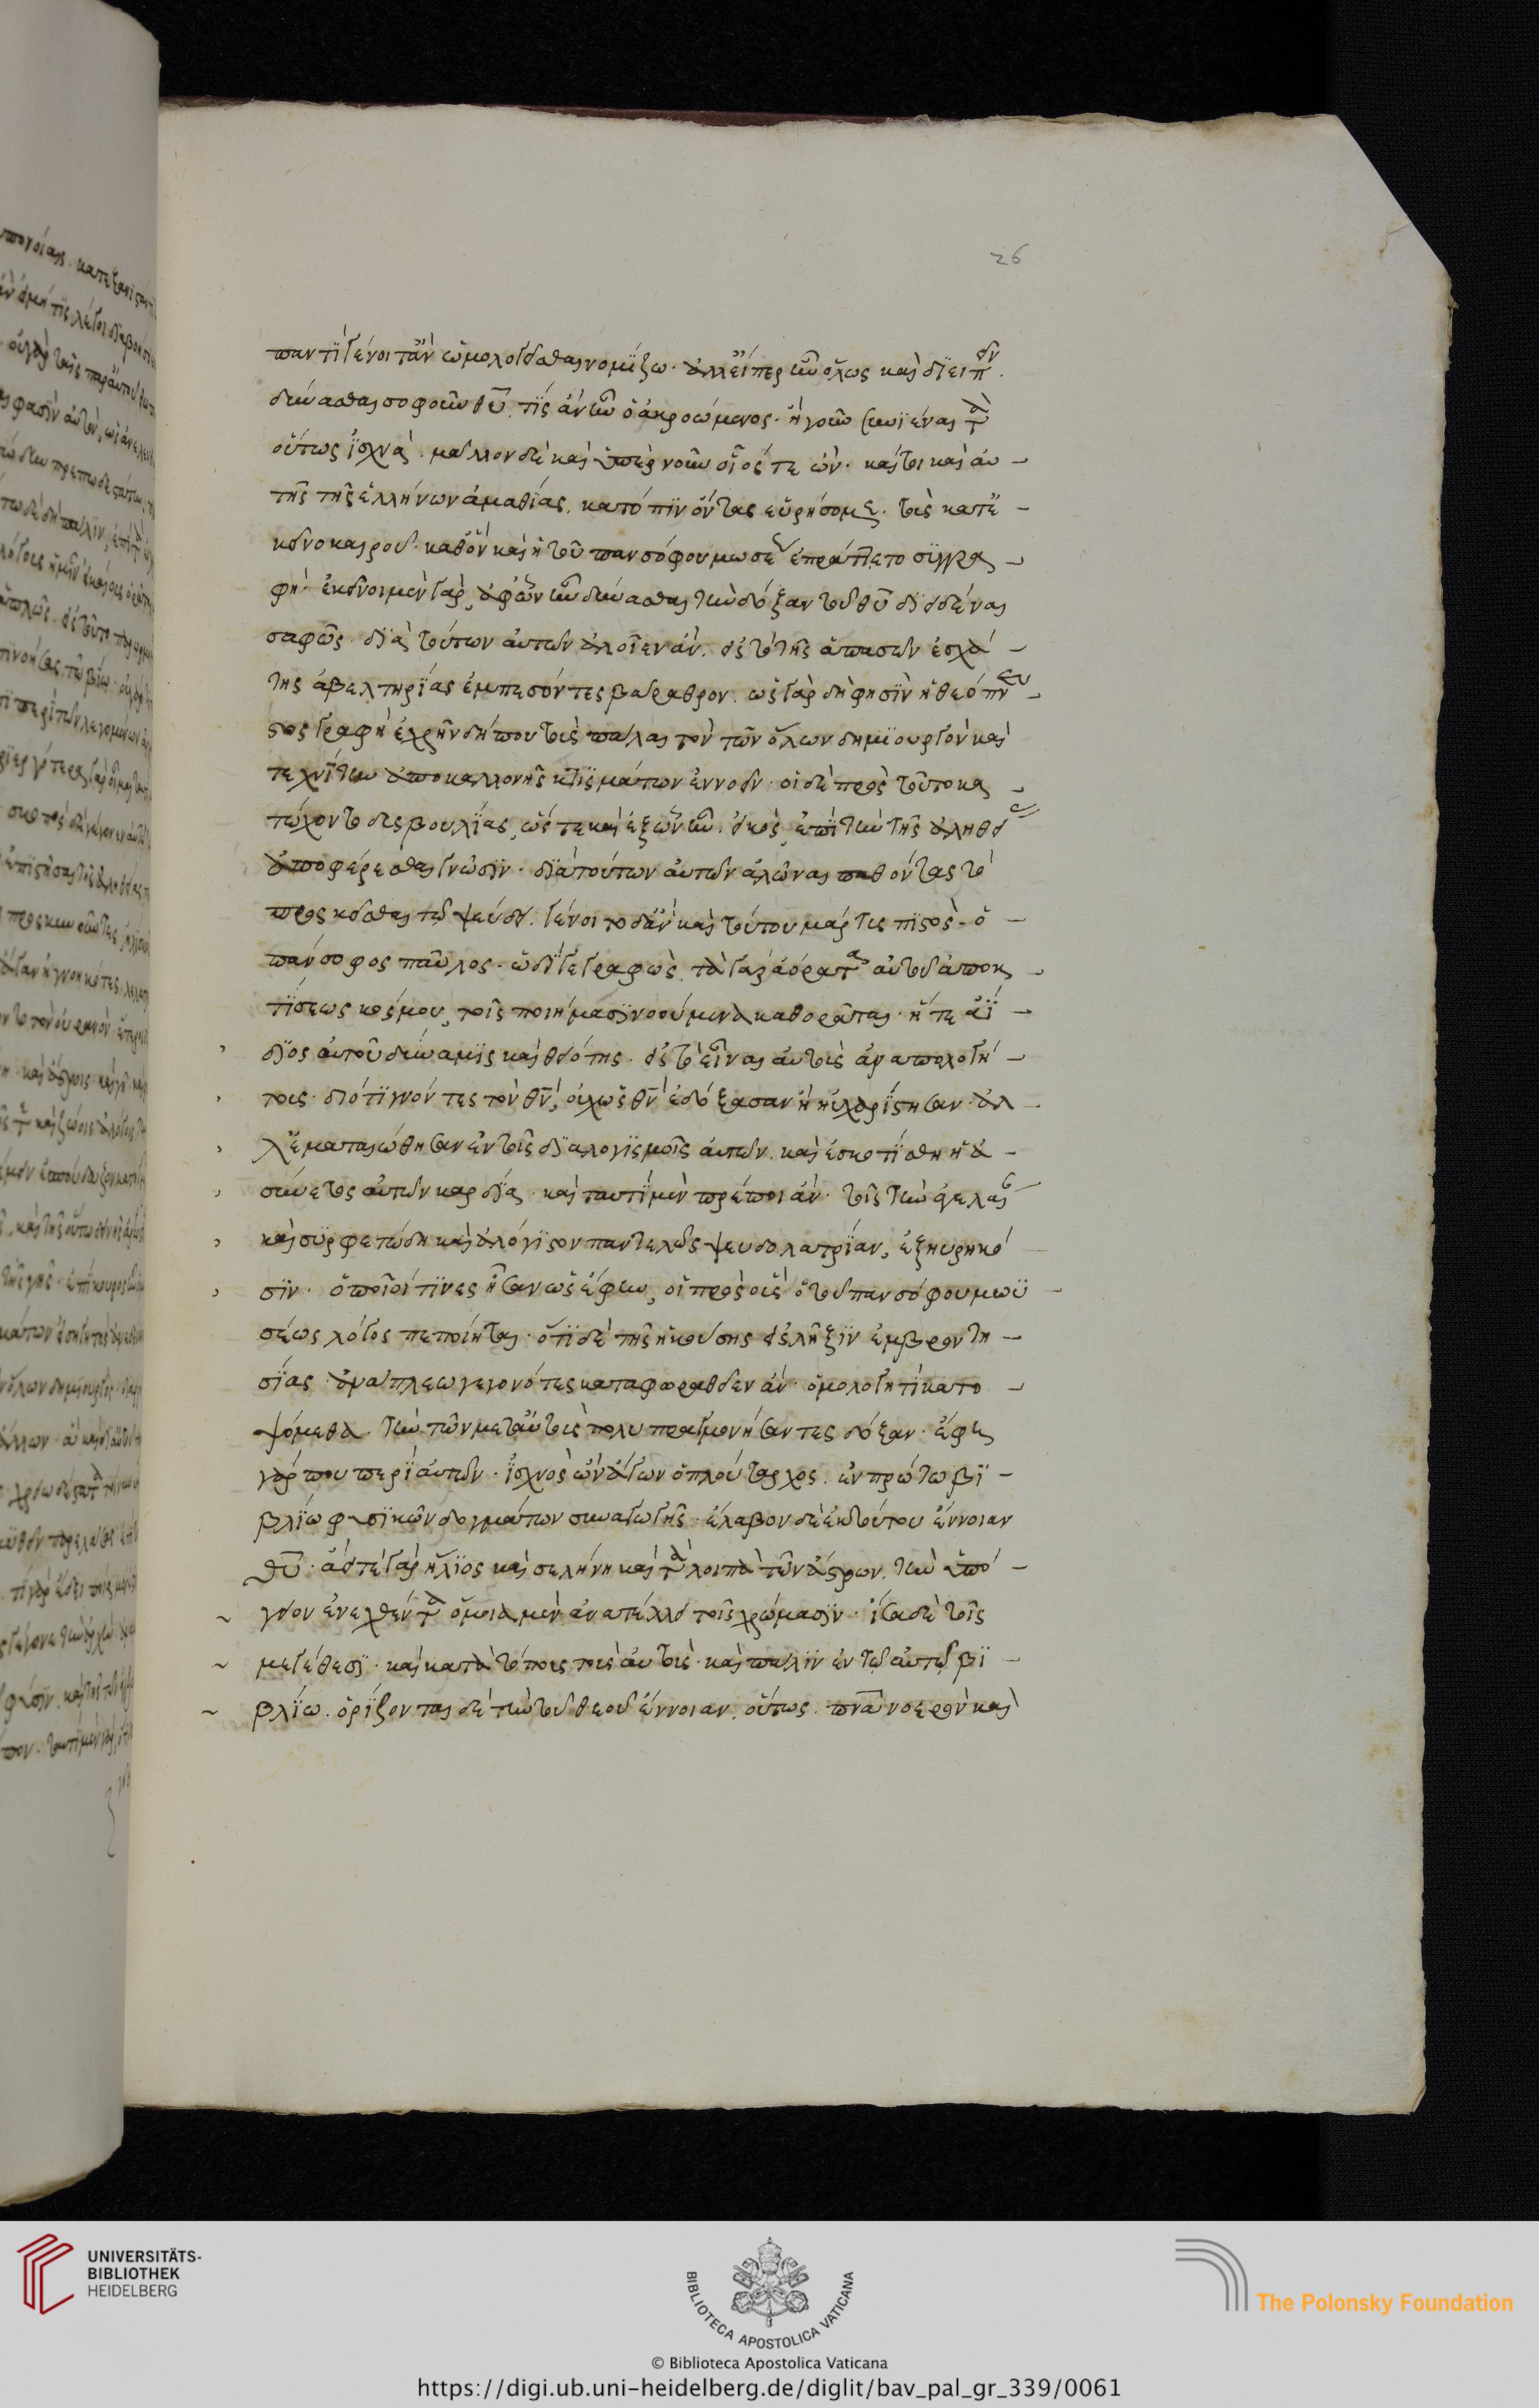 26
παντὶ γένοιτ' ἂν ὡμολογεῖσθαι νομίζω. ἀλλ' εἴπερ ἦν ὅλως καὶ διειπεῖν.
δύνασθαι σοφοῦν θυ̅. τίς ἂν ἦν ὁ ἀκροώμενος. ἤγουν συνϊέναι τὰ
οὕτως ἰσχνὰ. μᾶλλον δὲ καὶ ὑπὲρ νοῦν οἷός τε ὤν. καίτοι καὶ αὐ-
τῆς τῆς ἑλλήνων ἀμαθίας. κατόπϊν ὄντας εὑρήσομεν. τοὺς κατ' ἐ-
κεῖνο καιροῦ. καθ' ὃν καὶ ἡ τοῦ πανσόφου μωσέως ἐπράττετο σϋγγρα-
φή. ἐκεῖνοι μὲν γὰρ, ἀφ' ὧν ἦν δύνασθαι τὴν δόξαν τοῦ θυ̅ διειδέναι
σαφῶς. διὰ τούτων αὐτῶν ἁλοῖεν ἄν. εἰς τὸ τῆς ἁπασῶν ἐσχά-
της ἀβελτηρίας ἐμπεσόντες βάραθρον. ὡς γὰρ δή φησϊν ἡ θεόπνευ-
στος γραφὴ ἐχρῆν δήπου τοὺς πάλαι τὸν τῶν ὅλων δημϊουργὸν καὶ
τεχνίτην ἀπὸ καλλονῆς κτϊσμάτων ἐννοεῖν. οἱ δὲ πρὸς τοῦτο κα-
τώχοντο δυσβουλίας, ὥστε καὶ ἐξ ὧν ἦν. εἰκὸς, ἐπὶ τὴν τῆς ἀληθείας
ἀποφέρεσθαι γνῶσϊν. διὰ τούτων αὐτῶν ἁλῶναι παθόντας τὸ
προσκεῖσθαι τῷ ψεύδει. γένοιτο δ' ἂν καὶ τούτου μάρτυς πϊστὸς. ὁ
πάνσοφος παῦλος. ὡδὶ γεγραφὼς. τὰ γὰρ ἀόρατα αὐτοῦ ἀπὸ κ-
τίσεως κόσμου, τοῖς ποιήμασϊ νοούμενα καθορᾶται. ἥ τε ἀΐ-
δϊος αὐτοῦ δύναμϊς καὶ θειότης. εἰς τὸ εἶναι αὐτοὺς ἀναπολογή-
τους. διότϊ γνόντες τὸν θν̅, οὐχ ὡς θν̅ ἐδόξασαν ἢ ηὐχαρίστησαν. ἀλ-
λ' ἐματαιώθησαν ἐν τοῖς διαλογϊσμοῖς αὐτῶν. καὶ ἐσκοτίσθη ἡ ἀ-
σύνετος αὐτῶν καρδία. καὶ ταυτὶ μὲν πρέποι ἄν. τοῖς τὴν ἀγελαίαν
καὶ σϋρφετώδη καὶ ἀλόγϊστον παντελῶς ψευδολατρίαν, ἐξηυρηκό
σϊν. ὁποῖοί τϊνες ἦσαν ὡς ἔφην, οἱ πρὸς οὓς ὁ τοῦ πανσόφου μωϋ-
σέως λόγος πεποίηται. ὅτϊ δὲ τῆς ἡκούσης εἰς λῆξϊν ἐμβροντη-
σίας ἀνάπλεω γεγονότες καταφωραθεῖεν ἄν. ὁμολογητὶ κατο-
ψόμεθα. τὴν τῶν μετ' αὐτοὺς πολυπραγμονήσαντες δόξαν. ἔφη
γάρ που περὶ αὐτῶν. ἰσχνὸς ὢν ἄγαν ὁ πλούταρχος. ἐν πρώτω βϊ-
βλίω φυσϊκῶν δογμάτων συναγωγῆς. ἔλαβον δὲ ἐκ τούτου ἔννοιαν
θυ̅. ἀεί τε γὰρ ἥλϊος καὶ σελήνη καὶ τὰ λοιπὰ τῶν ἄστρων. τὴν ὑπό-
γειον ἐνεχθέντα ὅμοια μὲν ἀνατέλλει τοῖς χρώμασϊν. ἴσα δὲ τοῖς
μεγέθεσϊ. καὶ κατὰ τόπους τοὺς αὐτοὺς. καὶ πάλϊν ἐν τῷ αὐτῷ βϊ-
βλίω. ὁρίζονται δὲ τὴν τοῦ θεοῦ ἔννοιαν. οὕτως. πνα̅ νοερὸν καὶ
UNIVERSITÄTS-
BIBLIOTHEK
HEIDELBERG
BIBLIOTECA APOSTOLICA VATICANA
© Biblioteca Apostolica Vaticana
The Polonsky Foundation
https://digi.ub.uni-heidelberg.de/diglit/bav_pal_gr_339/0061